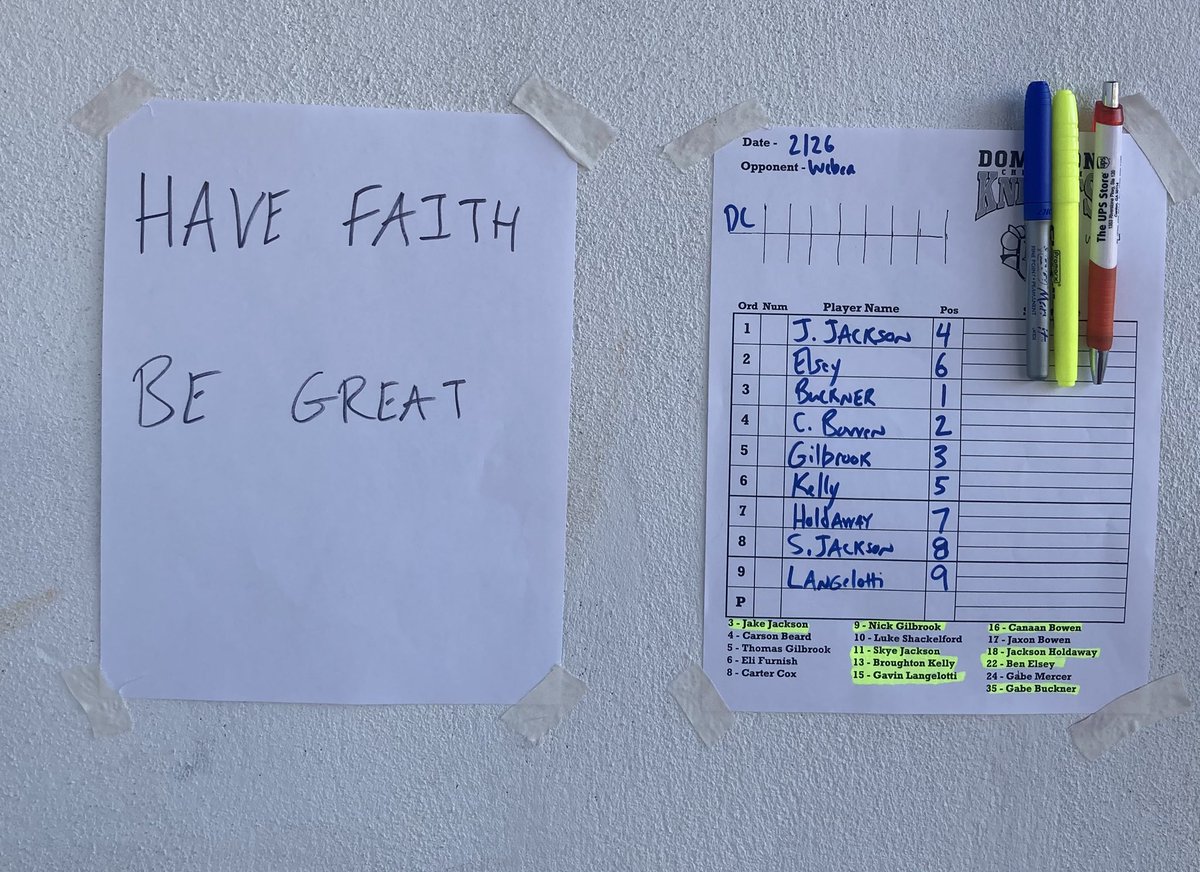 HAVE FAITH
BE GREAT
Date - 2/26
Opponent - Weber
DC
Ord Num Player Name Pos
1 J. JACKSON 4
2 Elsey 6
3 BUCKNER 1
4 C. Bowen 2
5 Gilbrook 3
6 Kelly 5
7 HoldAWAY 7
8 S. JACKSON 8
9 LANgelotti 9
P
3 - Jake Jackson
4 - Carson Beard
5 - Thomas Gilbrook
6 - Eli Furnish
8 - Carter Cox
9 - Nick Gilbrook
10 - Luke Shackelford
11 - Skye Jackson
13 - Broughton Kelly
15 - Gavin Langelotti
16 - Canaan Bowen
17 - Jaxon Bowen
18 - Jackson Holdaway
22 - Ben Elsey
24 - Gabe Mercer
35 - Gabe Buckner
The UPS Store